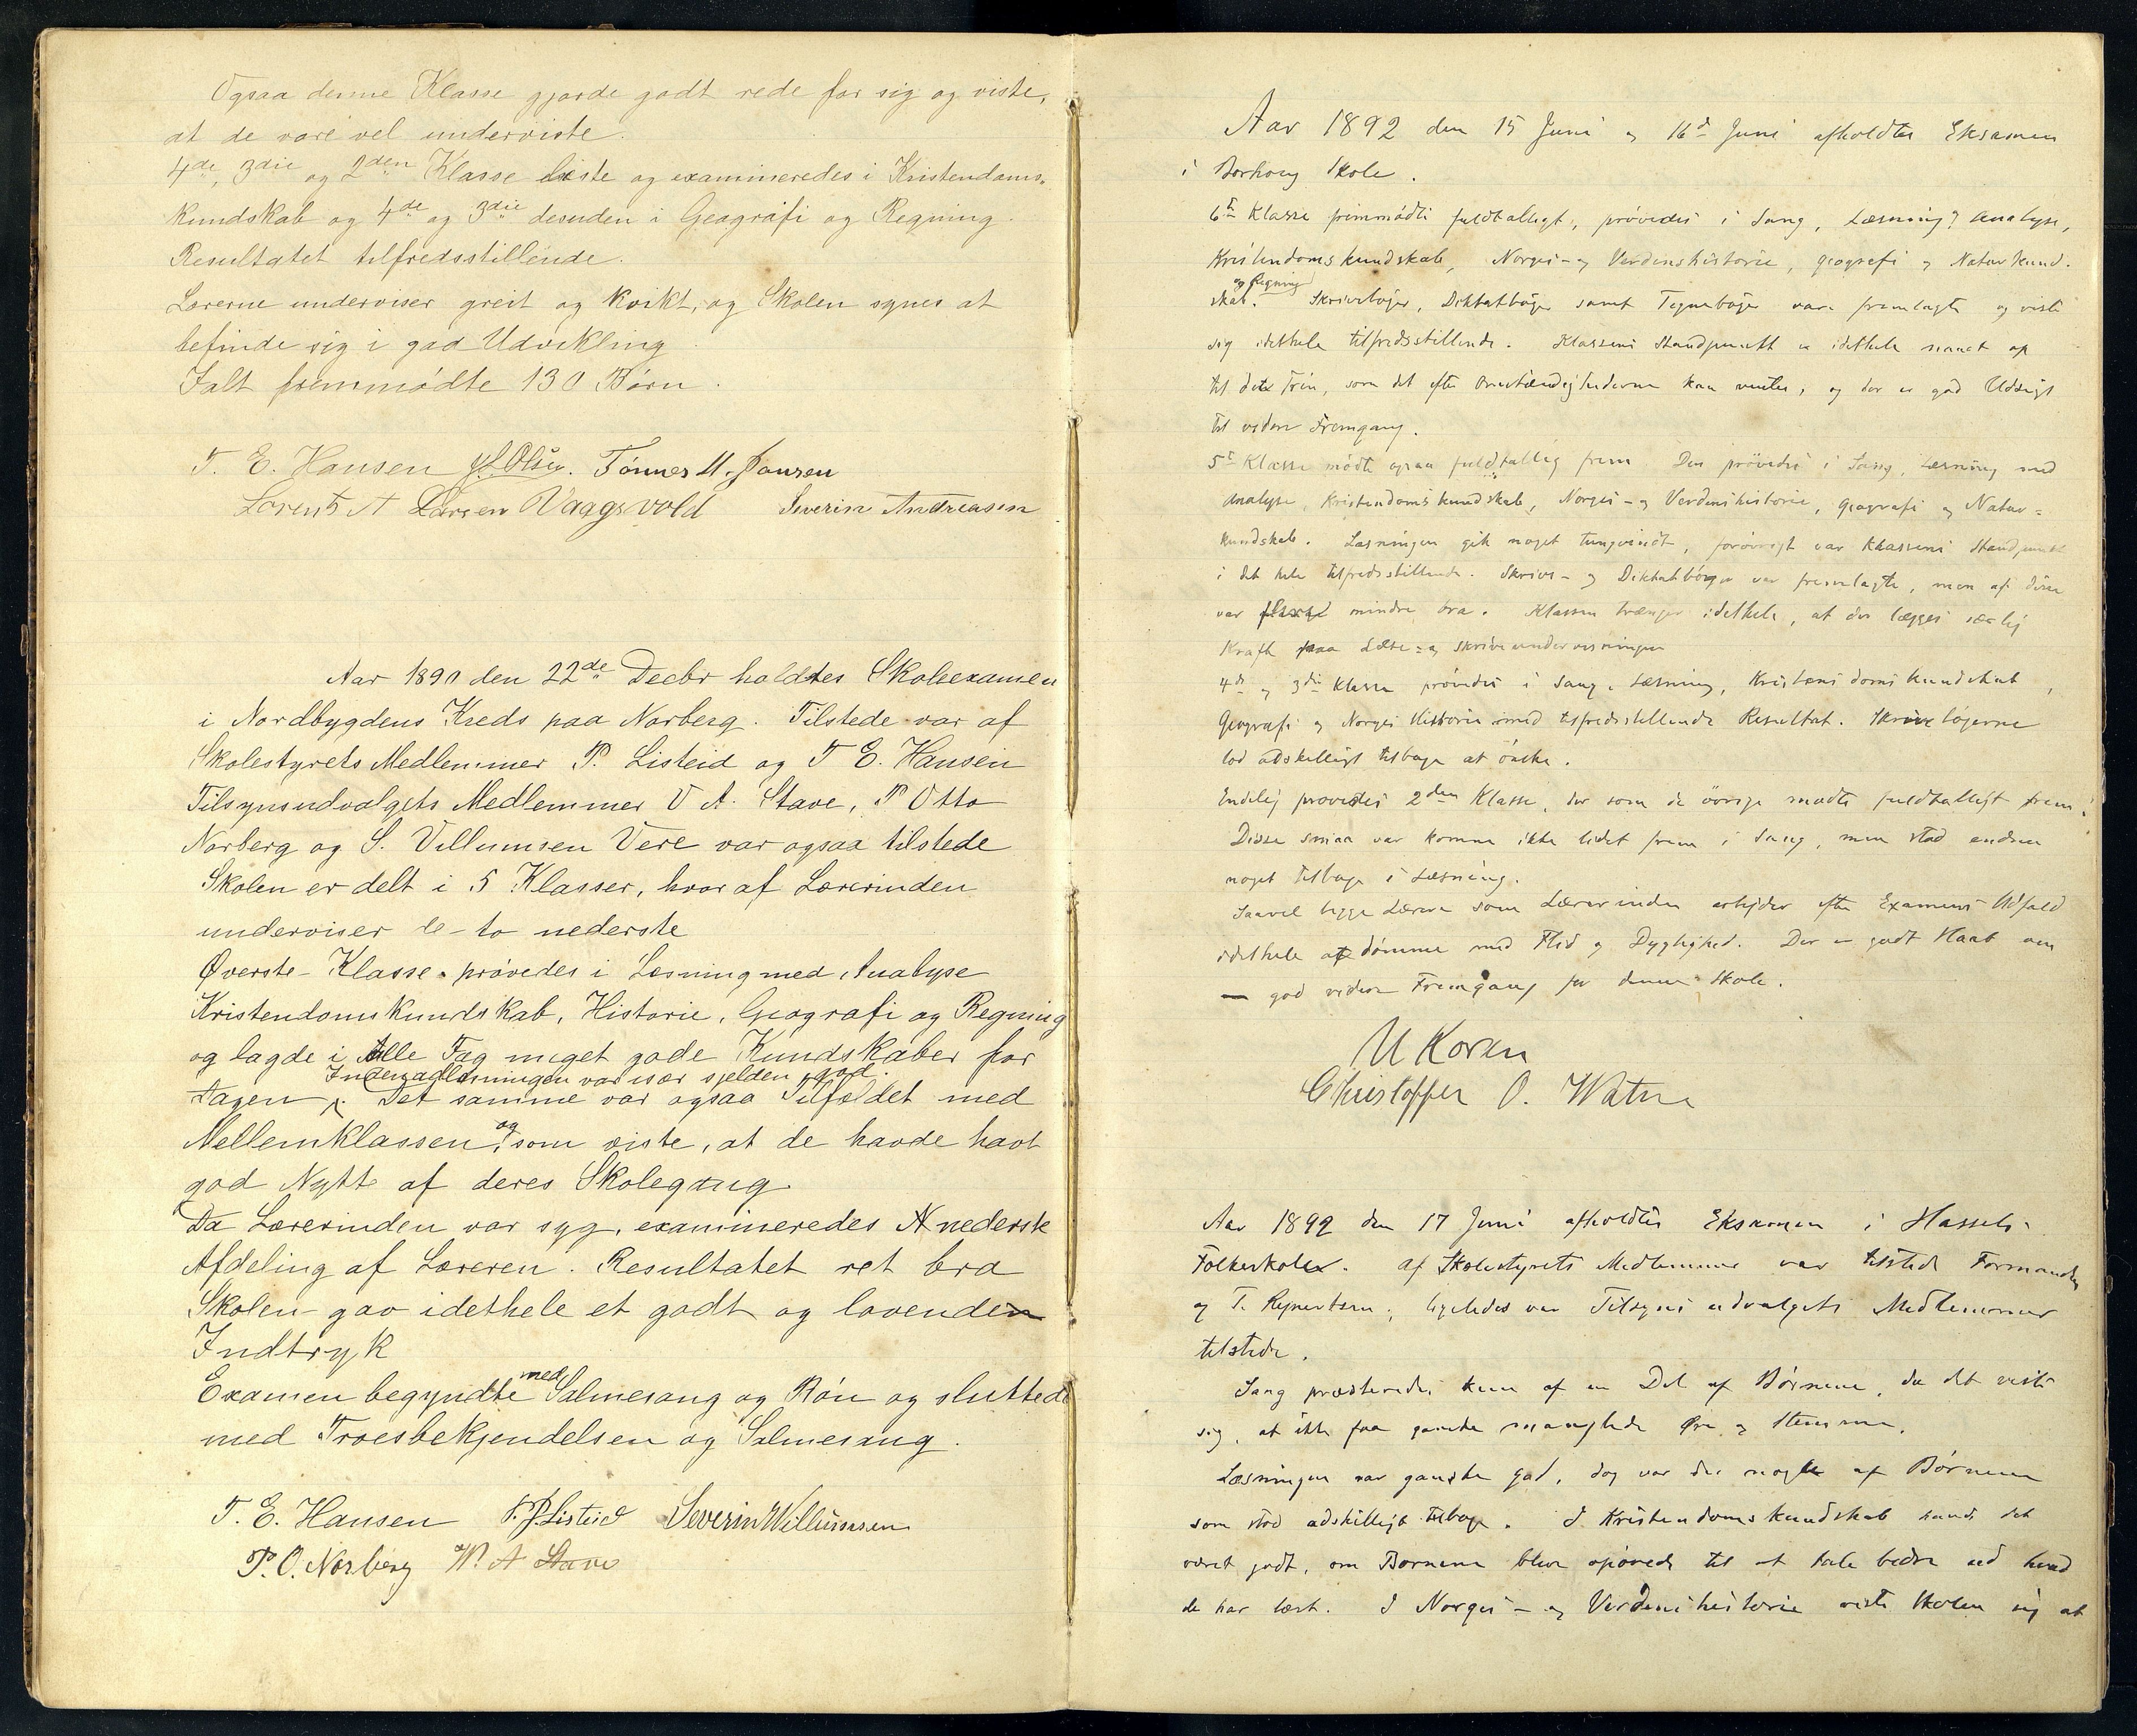 Ogsaa denne Klasse gjorde godt rede for sig og viste,
at de vare vel underviste.
4de, 3die og 2den Klasse læste og examineredes i Kristendoms-
kundskab og 4de og 3die desuden i Geografi og Regning.
Resultatet tilfredsstillende.
Lærerne underviser greit og kvikt, og Skolen synes at
befinde sig i god Udvikling
Ialt fremmødte 130 Børn.
T. E. Hansen J. Olsen. Tønnes M. Jansen
Lorents A Larsen Vaagsvold Severin Andreasen
Aar 1890 den 22de Decbr holdtes Skoleexamen
i Nordbygdens Kreds paa Norberg. Tilstede var af
Skolestyrets Medlemmer P. Listeid og T E. Hansen
Tilsynsudvalgets Medlemmer V A. Stave, P Otto
Norberg og S. Villumsen Vere var ogsaa tilstede
Skolen er delt i 5 Klasser, hvoraf Lærerinden
underviser de to nederste
Øverste Klasse prøvedes i Læsning med Analyse
Kristendomskundskab, Historie, Geografi og Regning
og lagde i Alle Fag meget gode Kundskaber for
Indenadlæsningen var især sjelden god.
Dagen. Det samme var ogsaa Tilfældet med
Mellemklassen, og som viste, at de havde havt
god Nytte af deres Skolegang
Da Lærerinden var syg, examineredes nederste
Afdeling af Læreren. Resultatet ret bra
Skolen gav idethele et godt og lovende
Indtryk
Examen begyndte med Salmesang og Bøn og sluttede
med Troesbekjendelsen og Salmesang.
T. E. Hansen P. J. Listeid Severin Willumsen
P. O. Norberg W. A Stave
Aar 1892 den 15 Juni og 16d Juni afholdtes Eksamen
i Borhaug Skole.
6te Klasse fremmødte fuldtalligt, prøvedes i Sang, Læsning, Analyse,
Kristendomskundskab, Norges- og Verdenshistorie, Geografi og Naturkund-
og Regning
skab. Skrivebøger, Diktatbøger samt Tegnebøger vare fremlagte og viste
sig idethele tilfredsstillende. Klassens Standpunkt er idethele naaet op
til det Trin, som det efter Omstændighederne kan ventes, og der er god Udsigt
til videre Fremgang.
5te Klasse mødte ogsaa fuldtallig frem. Den prøvedes i Sang, Læsning med
Analyse, Kristendomskundskab, Norges- og Verdenshistorie, Geografi og Natur-
kundskab. Læsningen gik noget tungvindt, forøvrigt var Klassens Standpunkt
i det hele tilfredsstillende. Skrive- og Diktatbøger var fremlagte, men af disse
var flere mindre bra. Klassen trænger idethele, at der lægges særlig
Kraft paa Læse- og Skriveundervisningen
4de og 3die Klasse prøvedes i Sang, Læsning, Kristendomskundskab,
Geografi og Norges Historie med tilfredsstillende Resultat. Skrivebøgerne
lod adskilligt tilbage at ønske.
Endelig prøvedes 2den Klasse, der som de øvrige mødte fuldtalligt frem.
Disse smaa var komne ikke lidet frem i Sang, men stod endnu
noget tilbage i Læsning.
Saavel begge Lærere som Lærerinden arbejder efter Examens Udfald
idethele at dømme med Flid og Dygtighed. Der er godt Haab om
god videre Fremgang for denne Skole.
U Koren
Christoffer O. Watne
Aar 1892 den 17 Juni afholdtes Eksamen i Hassels
Folkeskole. Af Skolestyrets Medlemmer var tilstede Formanden
og T. Reynertsen, ligeledes var Tilsynsudvalgets Medlemmer
tilstede.
Sang præsteredes kun af en Del af Børnene, da det viste
sig, at ikke faa ganske manglede Øre og Stemme.
Læsningen var ganske god, dog var der nogle af Børnene
som stod adskilligt tilbage. I Kristendomskundskab havde det
været godt, om Børnene blev opøvede til at tale bedre ud hvad
de har lært. I Norges- og Verdenshistorie viste Skolen sig at